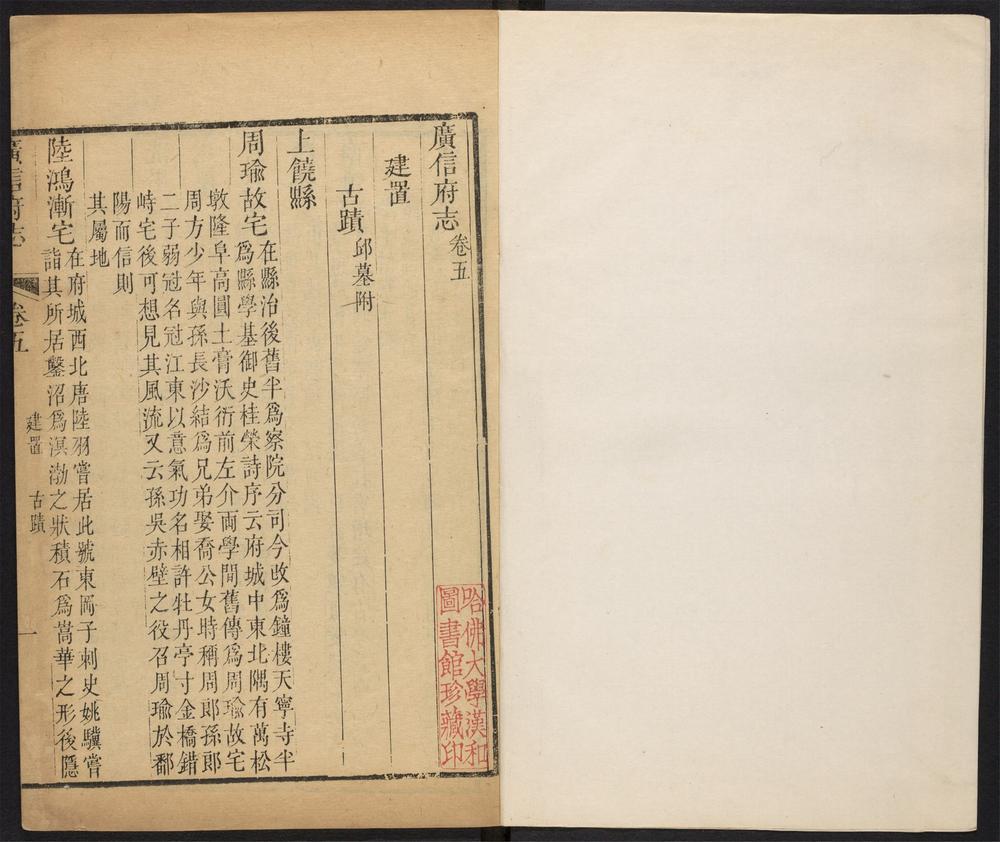 廣信府志卷五
建置
古蹟邱墓附
上饒縣
周瑜故宅在縣治後舊半爲察院分司今改爲鐘樓天寧寺半
爲縣學基御史桂榮詩序云府城中東北隅有萬松
墩隆阜高圓土膏沃衍前左介兩學間舊傳爲周瑜故宅
周方少年與孫長沙結爲兄弟娶喬公女時稱周郎孫郎
二子弱冠名冠江東以意氣功名相許牡丹亭寸金橋錯
峙宅後可想見其風流又云孫吳赤壁之役召周瑜於鄱
陽而信則
其屬地
陸鴻漸宅在府城西北唐陸羽嘗居此號東岡子刺史姚驥嘗
詣其所居鑿沼爲溟渤之狀積石爲嵩華之形後隱
廣信府志 卷五 建置 古蹟 一
哈佛大學漢和
圖書館珍藏印